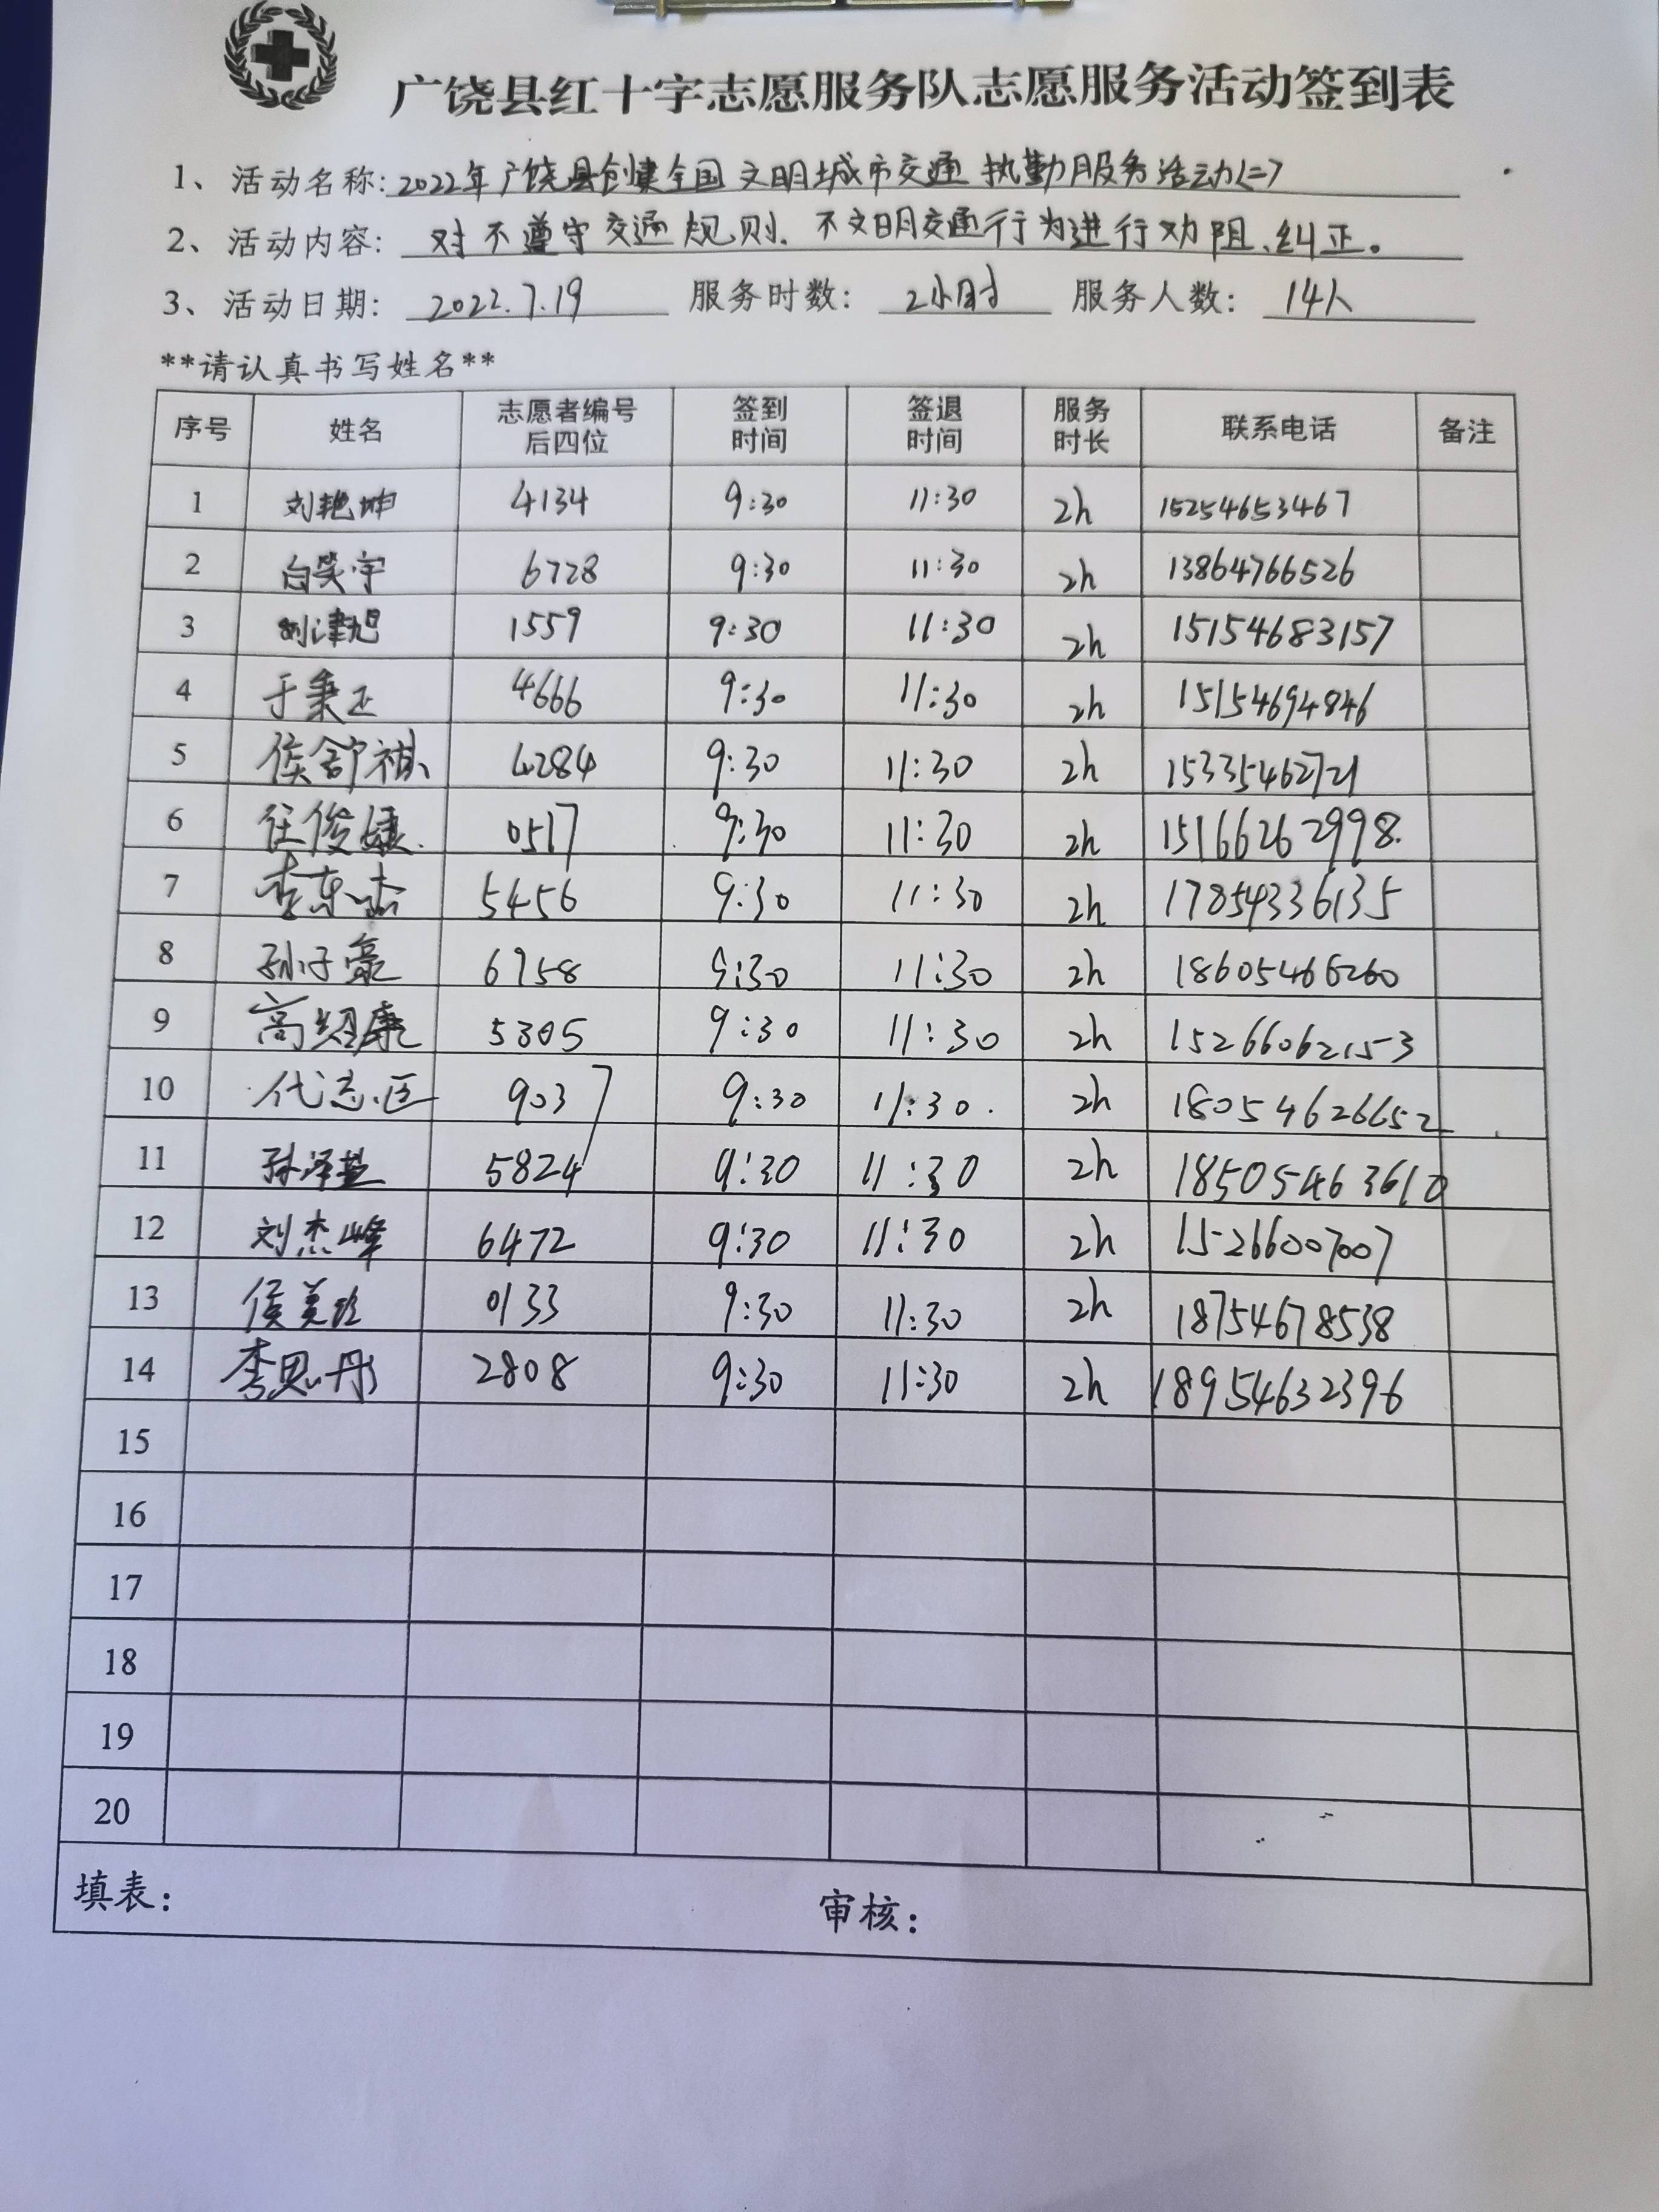 广饶县红十字志愿服务队志愿服务活动签到表
1、活动名称: 2022年广饶县创建全国文明城市交通执勤服务活动<二>
2、活动内容: 对不遵守交通规则、不文明交通行为进行劝阻、纠正。
3、活动日期: 2022.7.19 服务时数: 2小时 服务人数: 14人
**请认真书写姓名**
序号 姓名 志愿者编号后四位 签到时间 签退时间 服务时长 联系电话 备注
1 刘艳坤 4134 9:30 11:30 2h 15254653467
2 白笑宇 6728 9:30 11:30 2h 13864766526
3 刘津旭 1559 9:30 11:30 2h 15154683157
4 于秉正 4666 9:30 11:30 2h 15154694846
5 侯舒祺 4284 9:30 11:30 2h 15335462721
6 任俊婕 0517 9:30 11:30 2h 15166262998
7 李东杰 5456 9:30 11:30 2h 17854336135
8 孙子豪 6958 9:30 11:30 2h 18605466260
9 高绍康 5305 9:30 11:30 2h 15266062153
10 代志匡 9037 9:30 11:30 2h 18054626652
11 孙泽 5824 9:30 11:30 2h 18505463610
12 刘杰峰 6472 9:30 11:30 2h 15266007007
13 侯美 0133 9:30 11:30 2h 18754678538
14 李思彤 2808 9:30 11:30 2h 18954632396
15
16
17
18
19
20
填表: 审核: